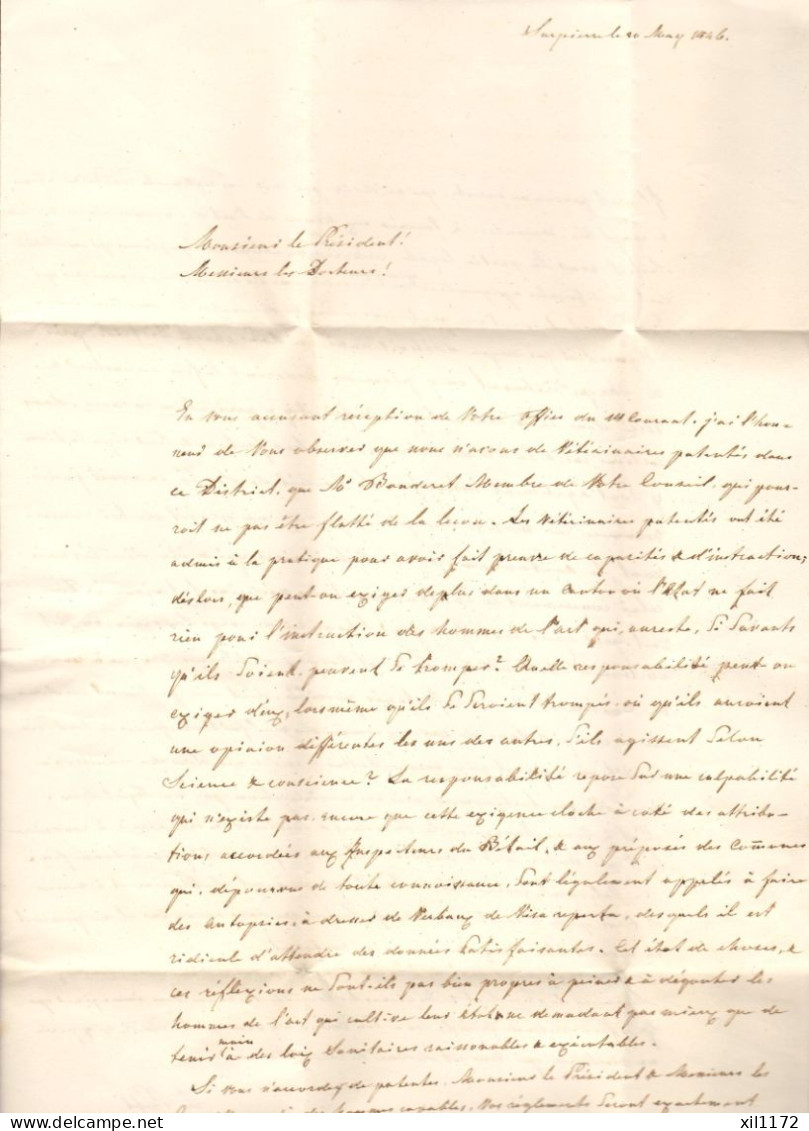 Surpierre le 20 May 1846.
Monsieur le Président!
Messieurs les Docteurs!
En vous accusant réception de Votre office du Courant, j'ai l'hon-
neur de Vous observer que nous n'avons de Vétérinaires patentés dans
ce District, que Mr Banderet Membre de Votre Conseil, qui pour-
roit ne pas être flatté de la leçon. Les Vétérinaires patentés ont été
admis à la pratique pour avoir fait preuve de capacités & d'instruction;
dèslors, que peut-on exiger deplus dans un Canton où l'Etat ne fait
rien pour l'instruction des hommes de l'art qui, aureste, si savants
qu'ils soient, peuvent se tromper? Quelle responsabilité peut on
exiger d'eux, lorsmême qu'ils se seroient trompés, où qu'ils auroient
une opinion différentes les uns des autres, s'ils agissent selon
Science & conscience? La responsabilité repose sur une culpabilité
qui n'existe pas, encore que cette exigence cloche à coté des attribu-
tions accordées aux Inspecteurs du Bétail, & aux préposés des Communes
qui, dépourvus de toute connoissance, sont légalement appelés à faire
des Autopsies, à dresser de Verbaux de Visa reperta, desquels il est
ridicule d'attendre des données satisfaisantes. Cet état de choses, &
ces réflexions ne sont-ils pas bien propres à peiner & à dégouter les
hommes de l'art qui cultive leur demandant pas mieux que de
tenir main à des loix Sanitaires raisonnables & exécutables.
Si vous n'accordez de patentes, Monsieur le Président & Messieurs les
hommes capables, vos règlements seront exactement
xil1172